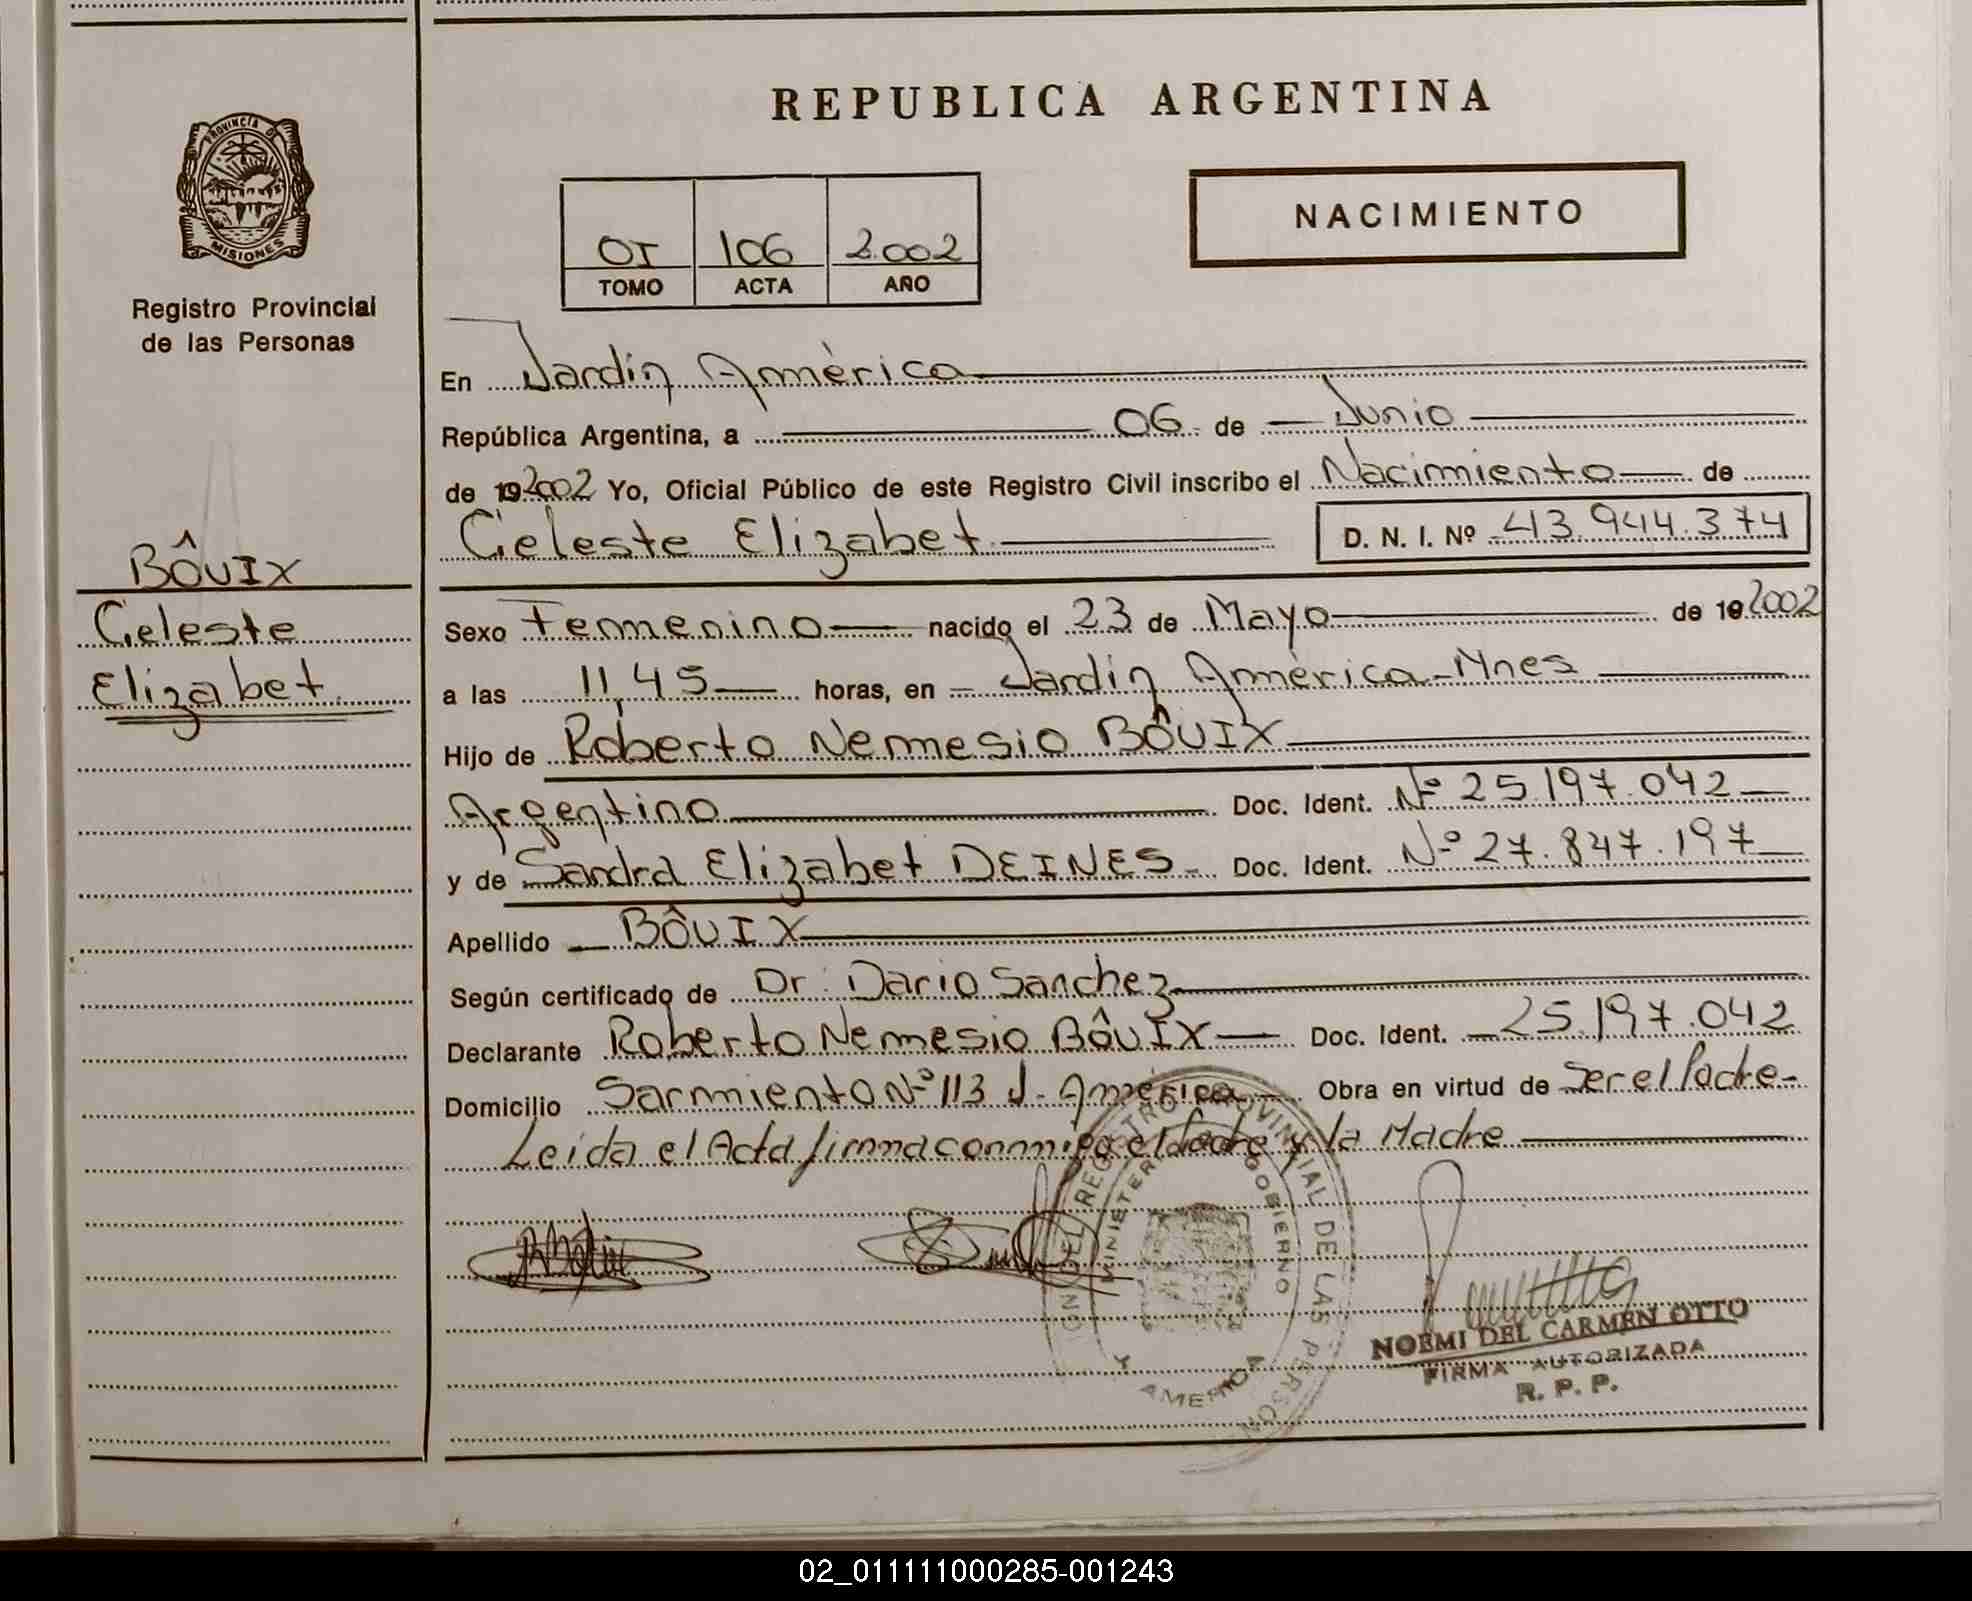 REPUBLICA ARGENTINA
PROVINCIA DE
MISIONES
Registro Provincial
de las Personas
NACIMIENTO
OI 106 2.002
TOMO ACTA AÑO
En Jardín América
República Argentina, a 06 de Junio
de 192002 Yo, Oficial Público de este Registro Civil inscribo el Nacimiento de
Celeste Elizabet D. N. I. Nº 43.944.374
BÔUIX
Celeste
Elizabet.
Sexo Femenino nacido el 23 de Mayo de 192002
a las 11,45 horas, en Jardín América-Mnes
Hijo de Roberto Nemesio BÔUIX
Argentino Doc. Ident. Nº 25.197.042
y de Sandra Elizabet DEINES Doc. Ident. Nº 27.847.197
Apellido BÔUIX
Según certificado de Dr. Dario Sanchez
Declarante Roberto Nemesio BÔUIX Doc. Ident. 25.197.042
Domicilio Sarmiento Nº 113 J. América Obra en virtud de Ser el Padre-
Leida el Acta firma conmigo el Padre y la Madre
REGISTRO PROVINCIAL DE LAS PERSON
MINISTER GOBIERNO
AMERICA
NOEMI DEL CARMEN OTTO
FIRMA AUTORIZADA
R. P. P.
02_011111000285-001243